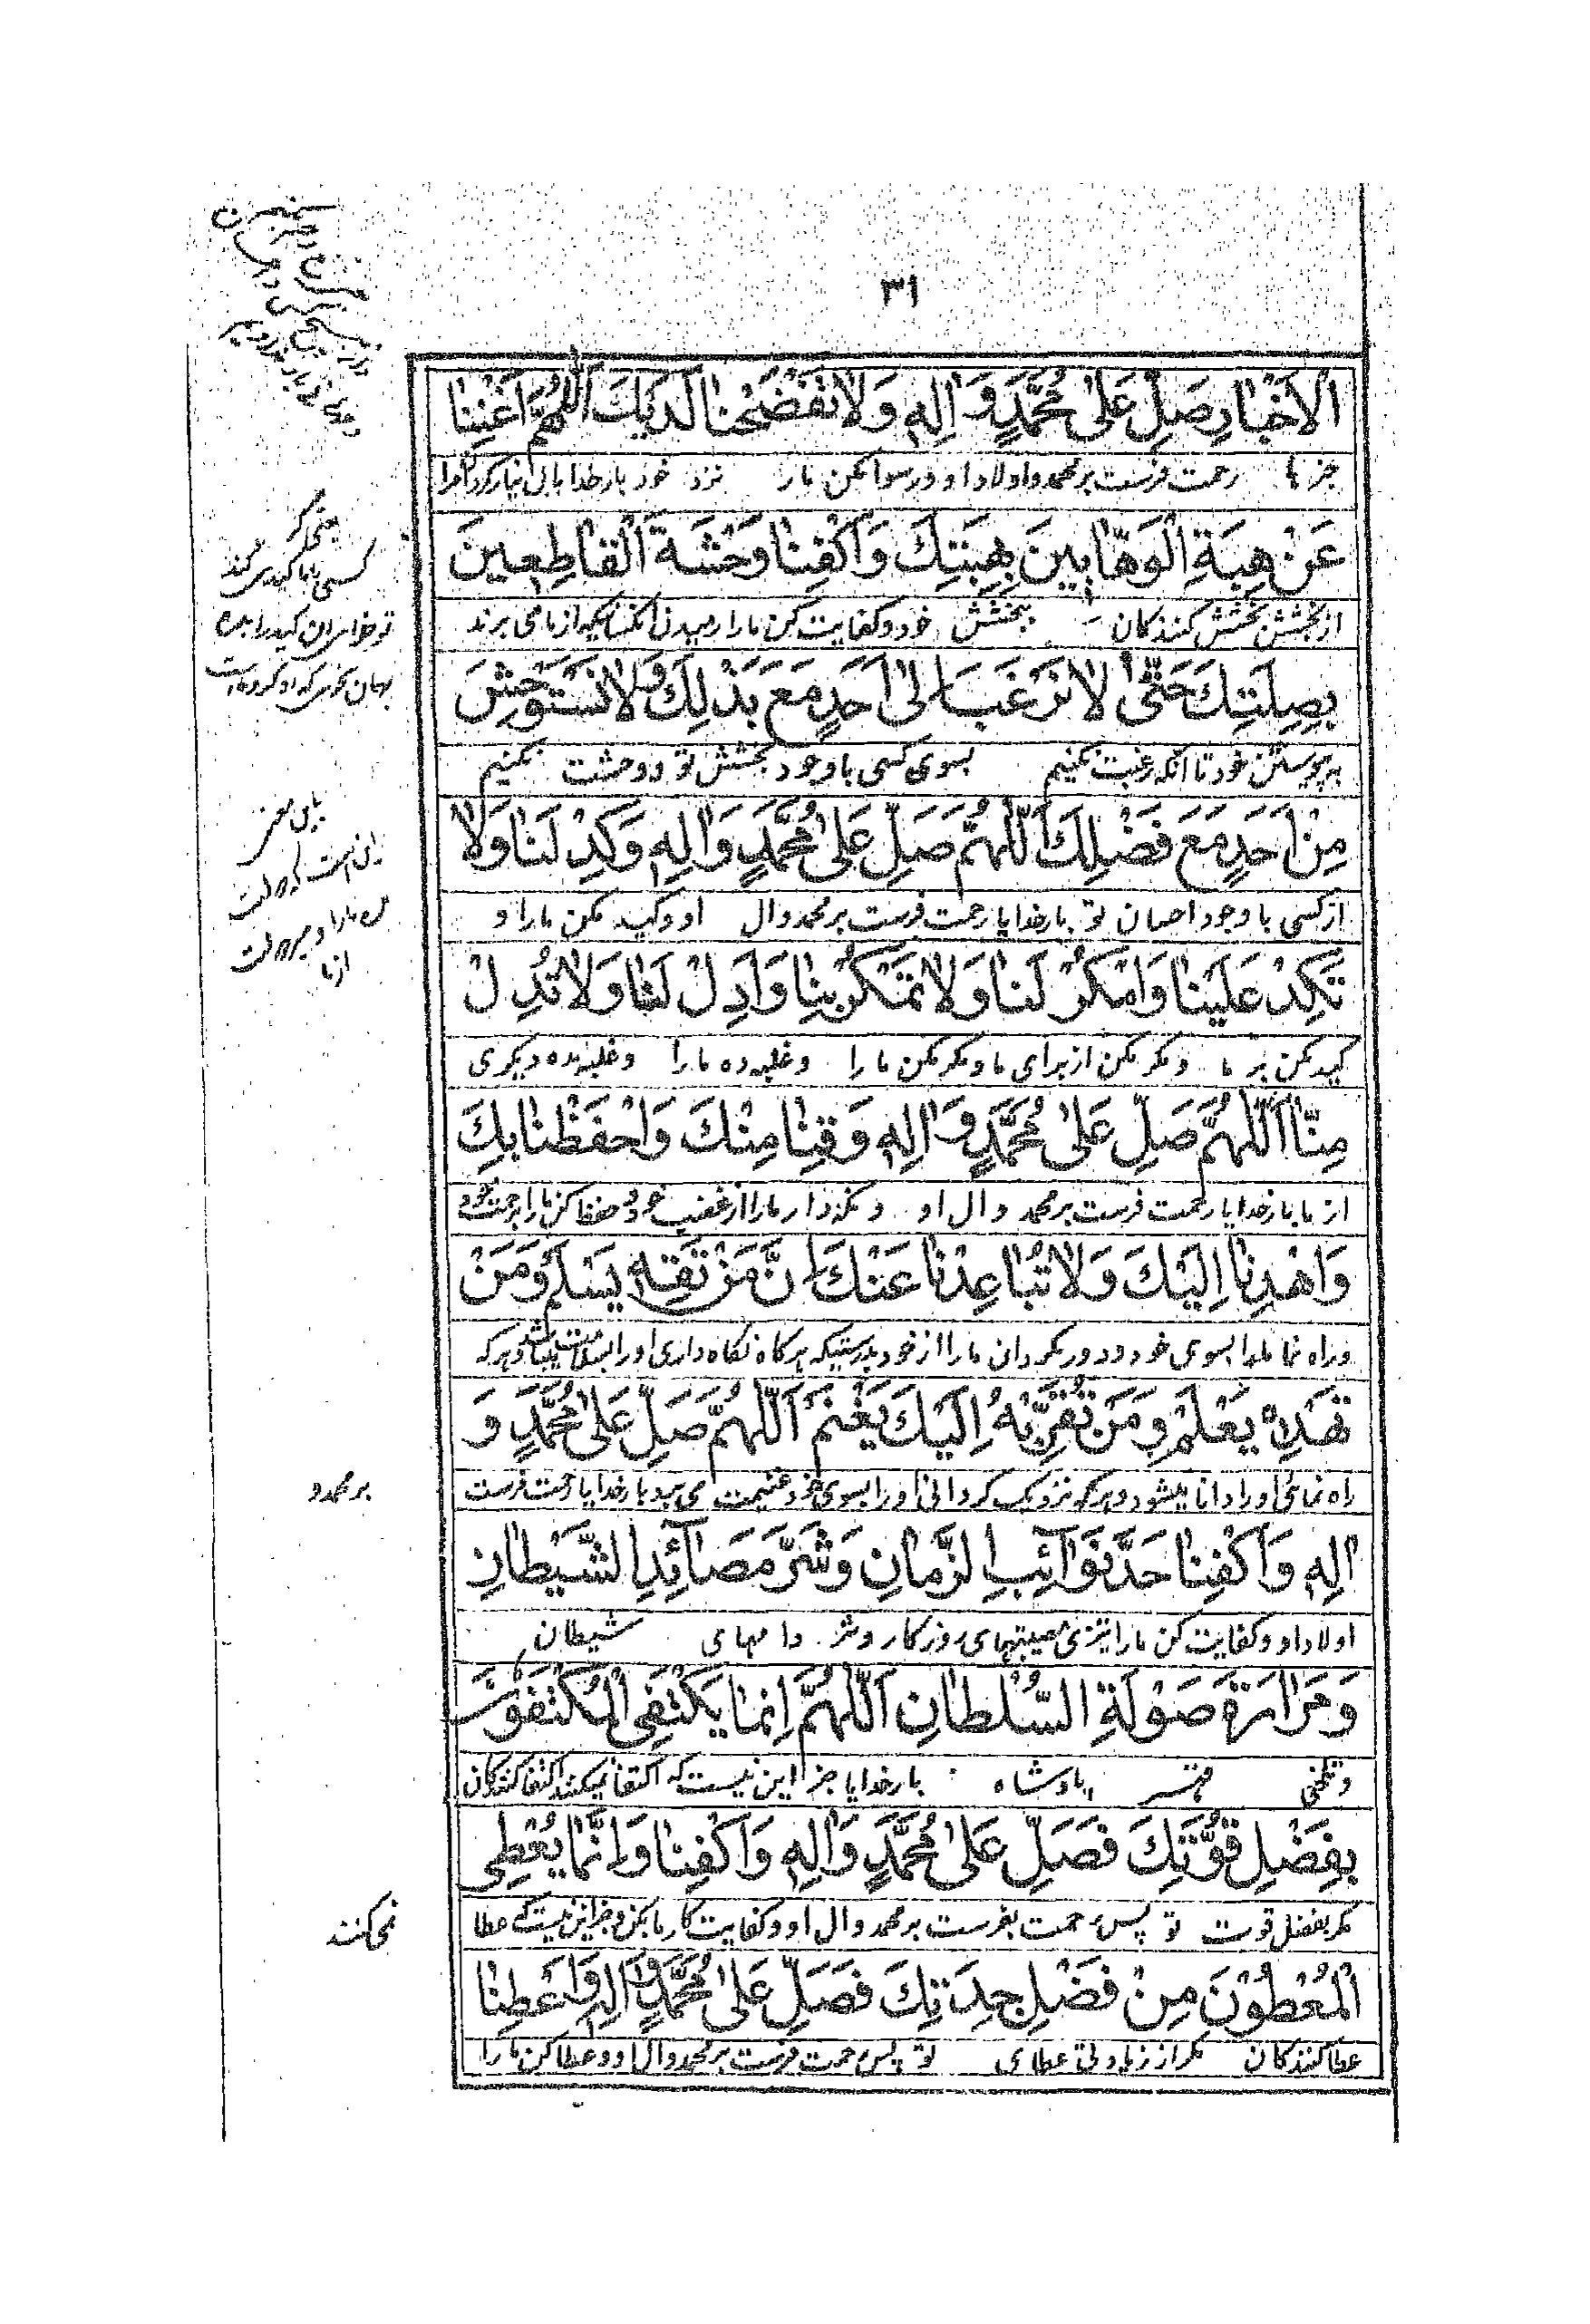 ٣١
الْاَخْبارِ صَلِّ عَلىٰ مُحَمَّدٍ وَ اٰلِهِ وَلا تَفْضَحْنا لَدَيْكَ اَللّٰهُمَّ اَغْنِنا
خبرها رحمت فرست بر محمد و اولاد او و رسوا مکن ما را نزد خود بار خدایا بی نیاز گردان ما را
عَنْ هِبَةِ الْوَهّابينَ بِهِبَتِكَ وَاكْفِنا وَحْشَةَ الْقاطِعينَ
از بخشش بخشش کنندگان ببخشش خود و کفایت کن ما را رمیدن آنکسانیکه از ما می برند
بِصِلَتِكَ حَتّىٰ لا نَرْغَبَ اِلىٰ اَحَدٍ مَعَ بَذْلِكَ وَ لا نَسْتَوْحِشَ
به پیوستن خود تا آنکه رغبت نکنیم بسوی کسی با وجود بخشش تو و وحشت نکنیم
مِنْ اَحَدٍ مَعَ فَضْلِكَ اَللّٰهُمَّ صَلِّ عَلىٰ مُحَمَّدٍ وَ اٰلِهِ وَكِدْ لَنا وَلا
از کسی با وجود احسان تو بار خدایا رحمت فرست بر محمد و آل او و کید مکن ما را و
تَكِدْ عَلَيْنا وَامْكُرْ لَنا وَلا تَمْكُرْ بِنا وَاَدِلْ لَنا وَلا تُدِلْ
کید مکن بر ما و مکر مکن از برای ما و مکر مکن ما را و غلبه ده ما را و غلبه مده دیگری
مِنّا اَللّٰهُمَّ صَلِّ عَلىٰ مُحَمَّدٍ وَ اٰلِهِ وَ قِنا مِنْكَ وَاحْفَظْنا بِكَ
از ما بار خدایا رحمت فرست بر محمد و آل او و نگه دار ما را از غضب خود و حفظ کن ما را برحمت خود
وَاهْدِنا اِلَيْكَ وَلا تُباعِدْنا عَنْكَ اِنَّ مَنْ تَقِهِ يَسْلَمْ وَمَنْ
و راه نما ما را بسوی خود و دور مگردان ما را از خود بدرستیکه هر گاه نگاه داری او را بسلامت میباشد و هر که
تَهْدِهِ يَعْلَمْ وَ مَنْ تُقَرِّبْهُ اِلَيْكَ يَغْنَمْ اَللّٰهُمَّ صَلِّ عَلىٰ مُحَمَّدٍ وَ
راه نمائی او را دانا میشود و هر که نزدیک گردانی او را بسوی خود غنیمت می برد بار خدایا رحمت فرست
بر محمد و
اٰلِهِ وَاكْفِنا حَدَّ نَوٰائِبِ الزَّمانِ وَشَرَّ مَصائِدِ الشَّيْطانِ
اولاد او و کفایت کن ما را تیزی مصیبتهای روزگار و شر دامهای شیطان
وَ مَرارَةَ صَوْلَةِ السُّلْطانِ اَللّٰهُمَّ اِنَّما يَكْتَفِي الْمُكْتَفُونَ
و تلخی قهر پادشاه بار خدایا جز این نیست که اکتفا میکنند اکتفا کنندگان
بِفَضْلِ قُوَّتِكَ فَصَلِّ عَلىٰ مُحَمَّدٍ وَاٰلِهِ وَ اكْفِنا وَاِنَّما يُعْطِي
مگر بفضل قوت تو پس رحمت بفرست بر محمد و آل او و کفایت کار ما بکن و جز این نیست که عطا
نمیکنند
الْمُعْطُونَ مِنْ فَضْلِ جِدَتِكَ فَصَلِّ عَلىٰ مُحَمَّدٍ وَ اٰلِهِ وَاَعْطِنا
عطا کنندگان مگر از زیادتی عطای تو پس رحمت فرست بر محمد و آل او و عطا کن ما را